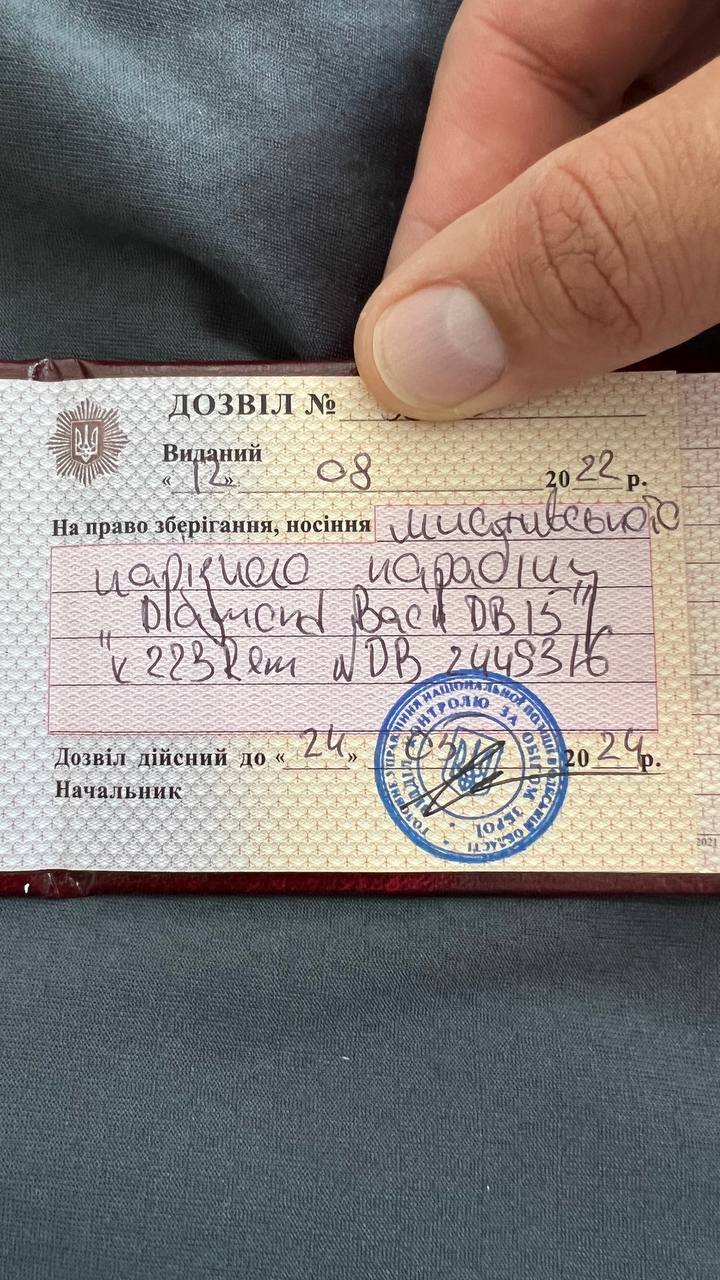 ДОЗВІЛ №
Виданий
« 12 » 08 2022 р.
На право зберігання, носіння мисливського
нарізного карабіну
"Diamond Back DB15"
к 223 Rem № DB 2449316
Дозвіл дійсний до « 24 » 05 2024 р.
Начальник
ГОЛОВНЕ УПРАВЛІННЯ НАЦІОНАЛЬНОЇ ПОЛІЦІЇ В ОБЛАСТІ
ВІДДІЛ КОНТРОЛЮ ЗА ОБІГОМ ЗБРОЇ
2021